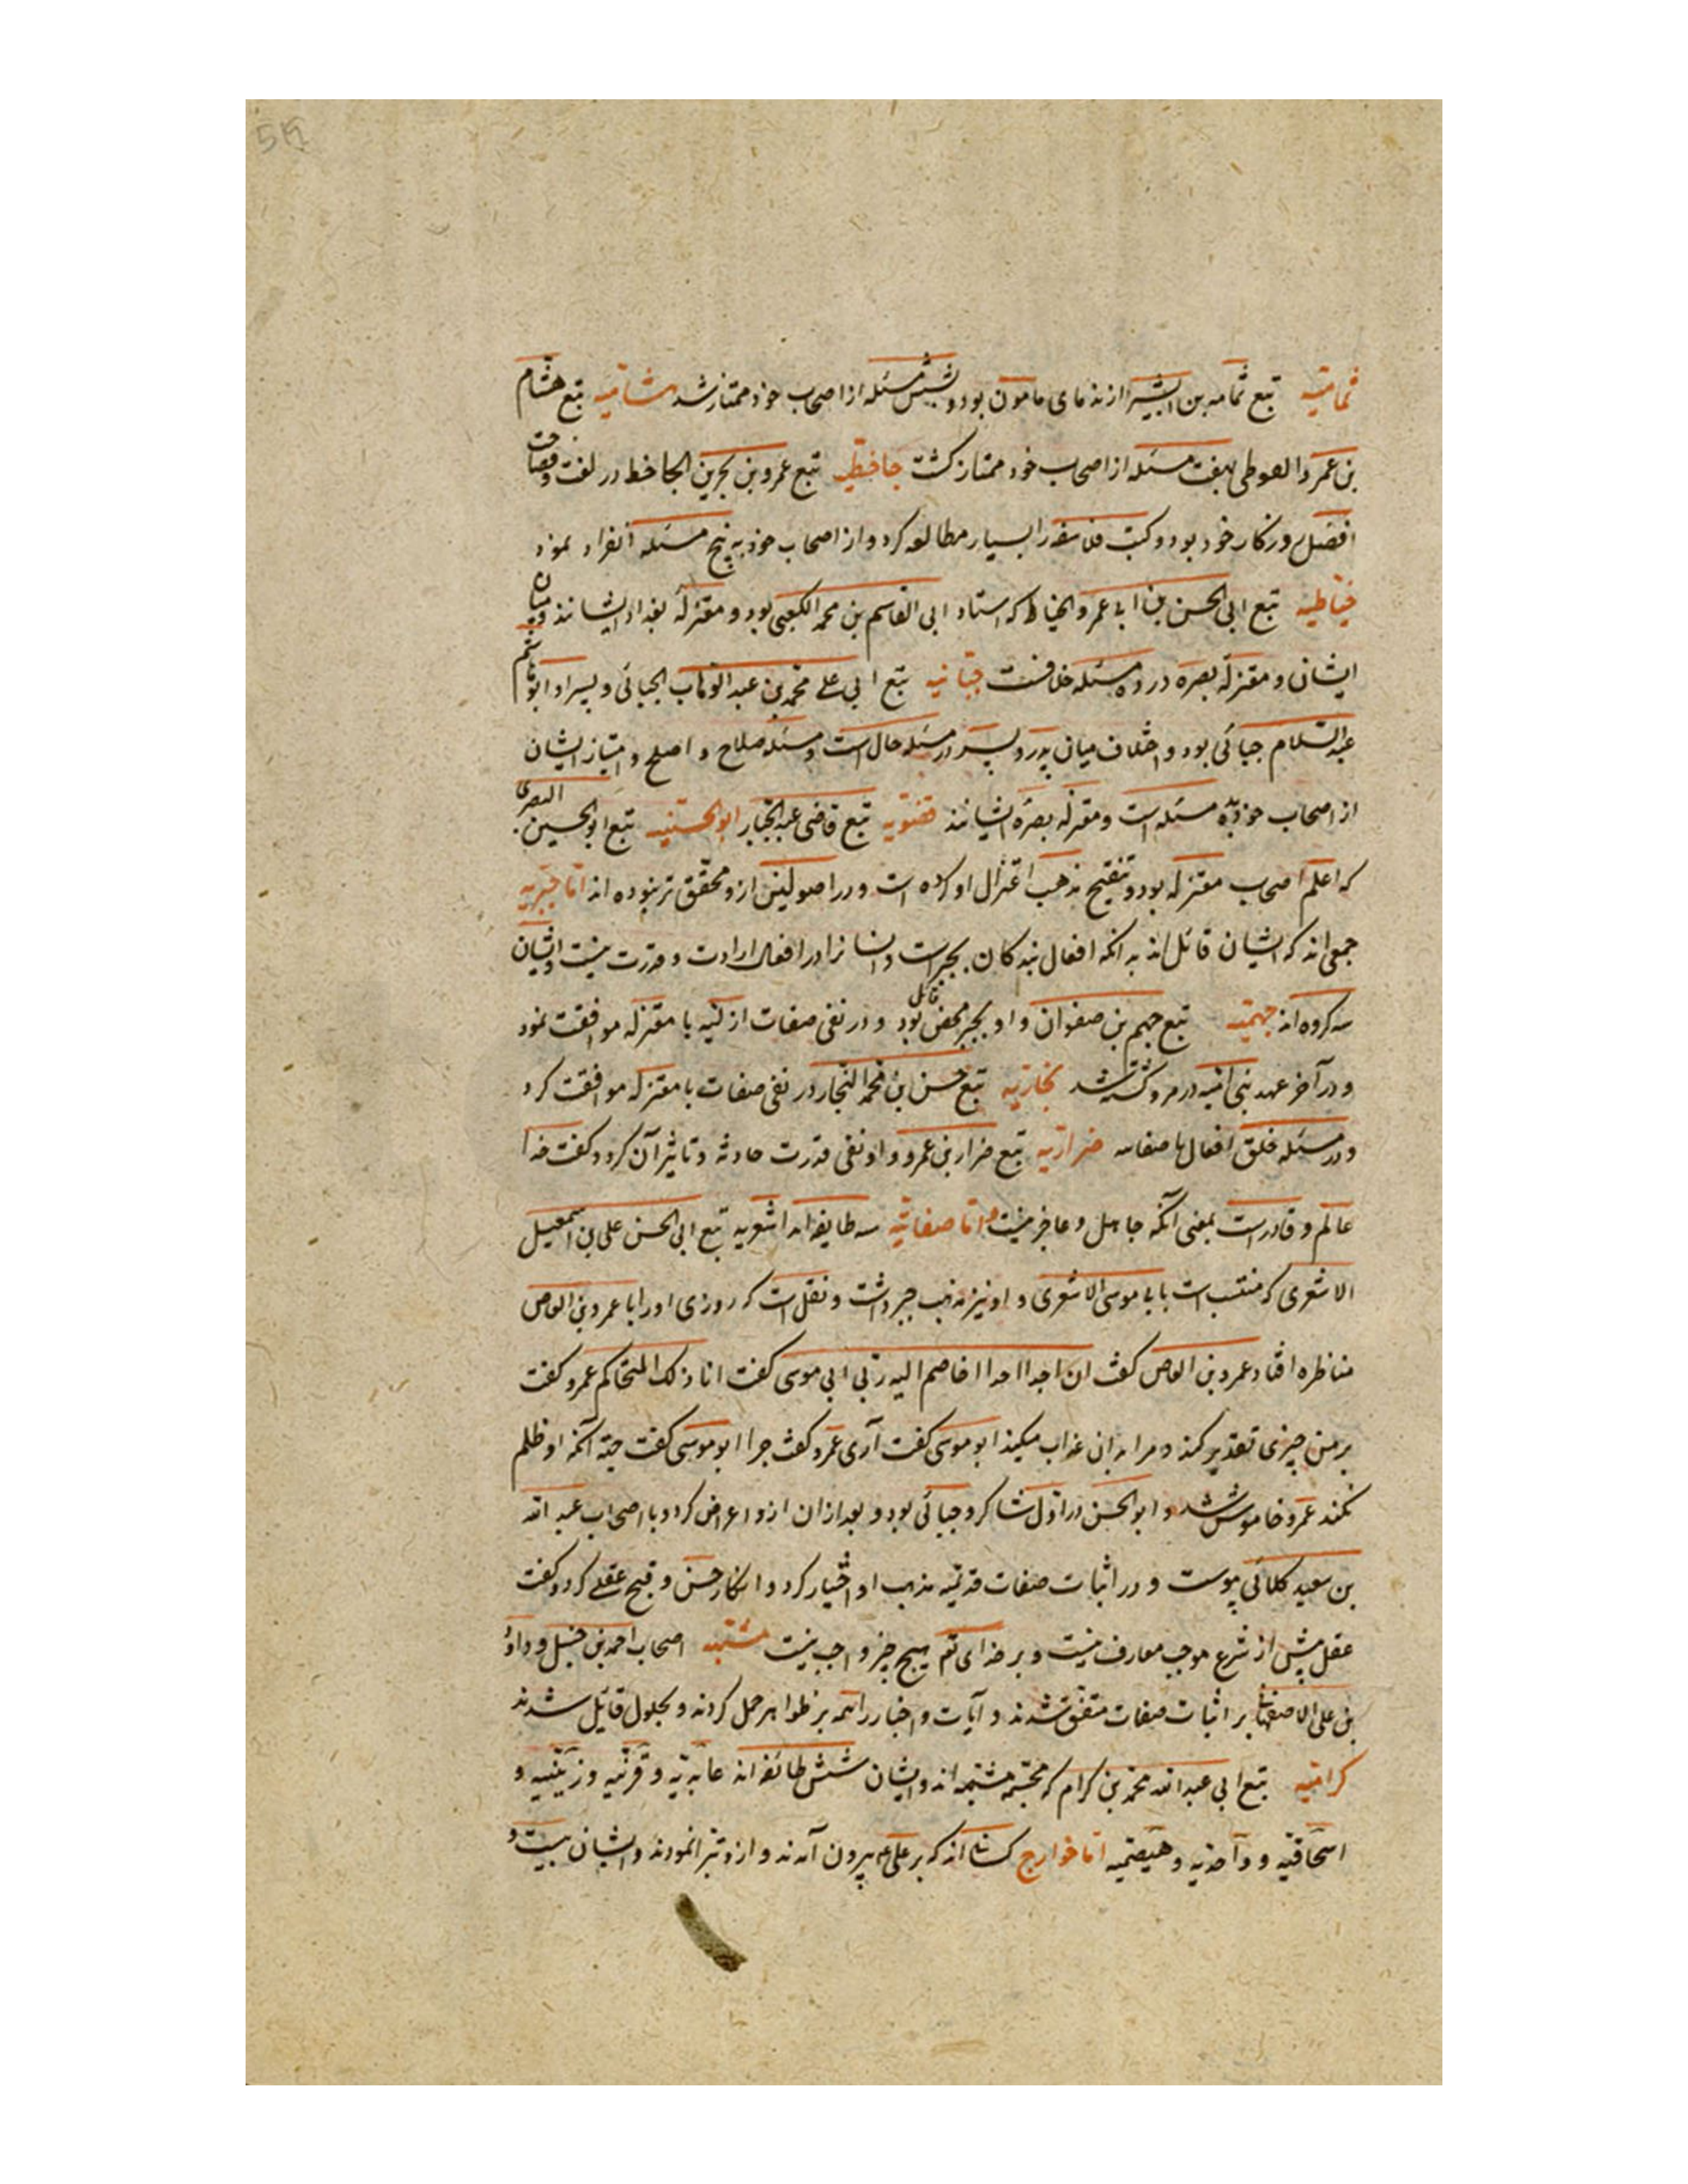 ثمامیه تبع ثمامه بن البشیر از ندمای مامون بود و بشش مسئله از اصحاب خود ممتاز شد هشامیه تبع هشام
بن عمرو الفوطی بهفت مسئله از اصحاب خود ممتاز کشت جاحظیه تبع عمرو بن بحر بن الجاحظ در لغت و فصاحت
افضل روزکار خود بود و کتب فلاسفه را بسیار مطالعه کرد و از اصحاب خود به پنج مسئله انفراد نمود
خیاطیه تبع ابی الحسن بن ابی عمرو الخیاط که استاد ابی القاسم بن محمد الکعبی بود و معتزلهٔ بغداد ایشانند و میان
ایشان و معتزلهٔ بصره در ده مسئله خلافست جبائیه تبع ابی علی محمد بن عبد الوهاب الجبائی و پسر او ابو هاشم
عبد السلام جبائی بود و اختلاف میان پدر و پسر در مسئله حال است و مسئله صلاح و اصلح و امتیاز ایشان
از اصحاب خود بده مسئله است و معتزلهٔ بصره ایشانند قضویه تبع قاضی عبد الجبار ابو الحسینیه تبع ابو الحسین البصری
که اعلم اصحاب معتزله بود و تنقیح مذهب اعتزال او کرده است و در اصولین ازو محقق تر نبوده اند اما جبریه
جمعی اند که ایشان قائل اند به انکه افعال بندکان بجبر است و انسانرا در افعال ارادت و قدرت نیست و ایشان
سه کروه اند جهمیه تبع جهم بن صفوان و او بجبر محض قائل بود و در نفی صفات ازلیه با معتزله موافقت نمود
و در آخر عهد بنی امیه در مرو کشته شد نجاریه تبع حسن ابن محمد النجار در نفی صفات با معتزله موافقت کرد
و در مسئله خلق افعال با صفاتیه ضراریه تبع ضرار بن عمرو و او نفی قدرت حادثه و تاثیر آن کرد و کفت خدا
عالم و قادر است بمعنی آنکه جاهل و عاجز نیست و اما صفاتیه سه طایفه اند اشعریه تبع ابی الحسن علی بن اسمعیل
الاشعری که منتسب است بابی موسی الاشعری و او نیز مذهب جبر داشت و نقل است که روزی او را با عمرو بن العاص
مناظره افتاد عمرو بن العاص کفت ان اجد احدا اخاصم الیه ربی ابی موسی کفت انا ذلک المتحاکم عمرو کفت
بر من چیزی تقدیر کند و مرا بدان عذاب میکند ابو موسی کفت آری عمرو کفت چرا ابو موسی کفت جهة آنکه او ظلم
نکند عمرو خاموش شد و ابو الحسن در اول شاکرد جبائی بود و بعد از ان ازو اعراض کرد و با اصحاب عبد الله
بن سعید کلابی پیوست و در اثبات صفات قدیمه مذهب او اختیار کرد و انکار حسن و قبح عقلی کرد و کفت
عقل پیش از شرع موجب معارف نیست و بر خدای تع هیچ چیز واجب نیست مشبهه اصحاب احمد بن حنبل و داود
بن علی الاصفهانی بر اثبات صفات متفق شدند و آیات و اخبار را همه بر ظواهر حمل کردند و بحلول قایل شدند
کرامیه تبع ابی عبد الله محمد بن کرام که مجسمه مشبهه اند و ایشان شش طائفه اند عابدیه و قرنیه و زینبیه و
اسحاقیه و واحدیه و هیصمیه اما خوارج کسانی اند که بر علی ع بیرون آمدند و ازو تبرا نمودند و ایشان بیست و